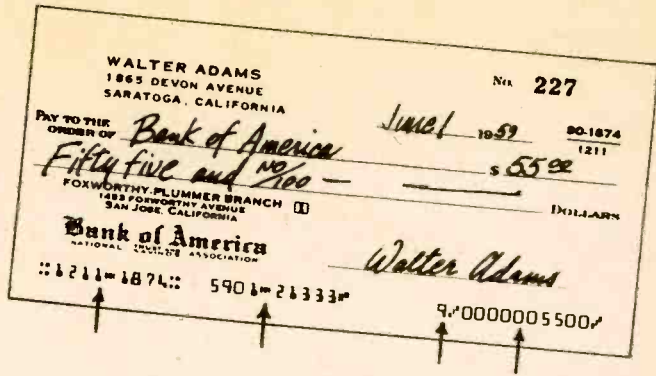 WALTER ADAMS
1865 DEVON AVENUE
SARATOGA, CALIFORNIA
No. 227
June 1 1959
90-1874
1211
PAY TO THE
ORDER OF Bank of America $ 55 00
Fifty five and NO/100 — DOLLARS
FOXWORTHY-PLUMMER BRANCH
1483 FOXWORTHY AVENUE
SAN JOSE, CALIFORNIA
Bank of America
NATIONAL TRUST AND SAVINGS ASSOCIATION
Walter Adams
⑆1211⑉1874⑆ 5901⑉21333⑈ 9⑇0000005500⑇